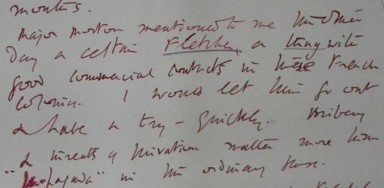 months.
Major Morton mentioned to me the other
day a certain Fletcher, a thing with
good commercial contacts in the French
colonies. I would let him go out
& have a try – quickly. Bribery
& threats of privation matter more than
"propaganda" in the ordinary sense.